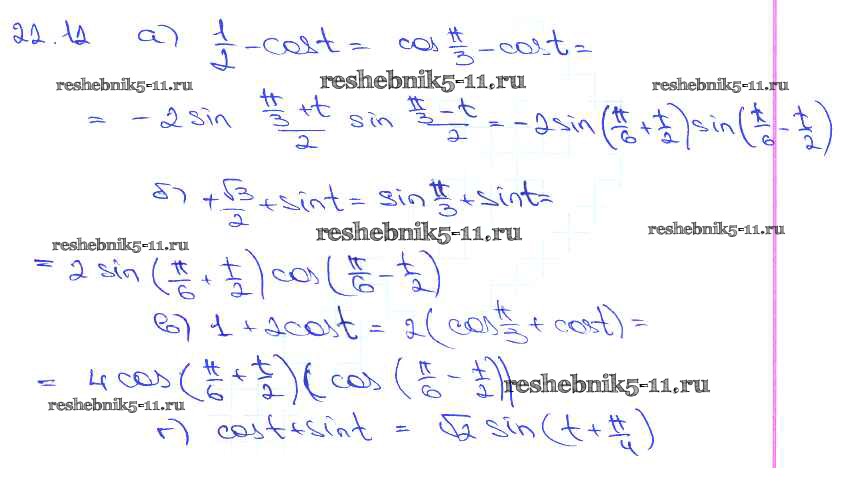 22.12 а) 1/2 - cost = cos π/3 - cost =
reshebnik5-11.ru reshebnik5-11.ru reshebnik5-11.ru
= - 2 sin (π/3 + t)/2 sin (π/3 - t)/2 = - 2 sin (π/6 + t/2) sin (π/6 - t/2)
б) + √3/2 + sint = sin π/3 + sint =
reshebnik5-11.ru reshebnik5-11.ru reshebnik5-11.ru
= 2 sin (π/6 + t/2) cos (π/6 - t/2)
в) 1 + 2cost = 2 (cos π/3 + cost) =
= 4 cos (π/6 + t/2) (cos (π/6 - t/2)) reshebnik5-11.ru
reshebnik5-11.ru
г) cost + sint = √2 sin (t + π/4)